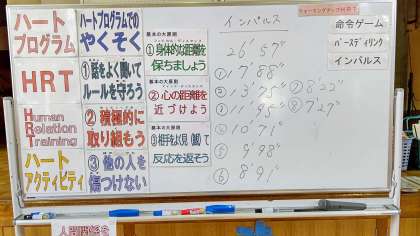 ハート
プログラム
HRT
Human
Relation
Training
ハート
アクティビティ
ハートプログラムでの
やくそく
①話をよく聞いて
ルールを守ろう
②積極的に
取り組もう
③他の人を
傷つけない
基本の大原則
①身体的な距離を
保ちましょう
基本の大原則
②心の距離を
近づけよう
基本の大原則
③相手をよく見(観)て
反応を返そう
インパルス
26'57"
①17"88
②13"75
③11"95
④10"71
⑤9"98
⑥8"91
⑦8'22"
⑧7'27"
ウォーミングアップHRT
命令ゲーム
バースディリング
インパルス
人間関係を